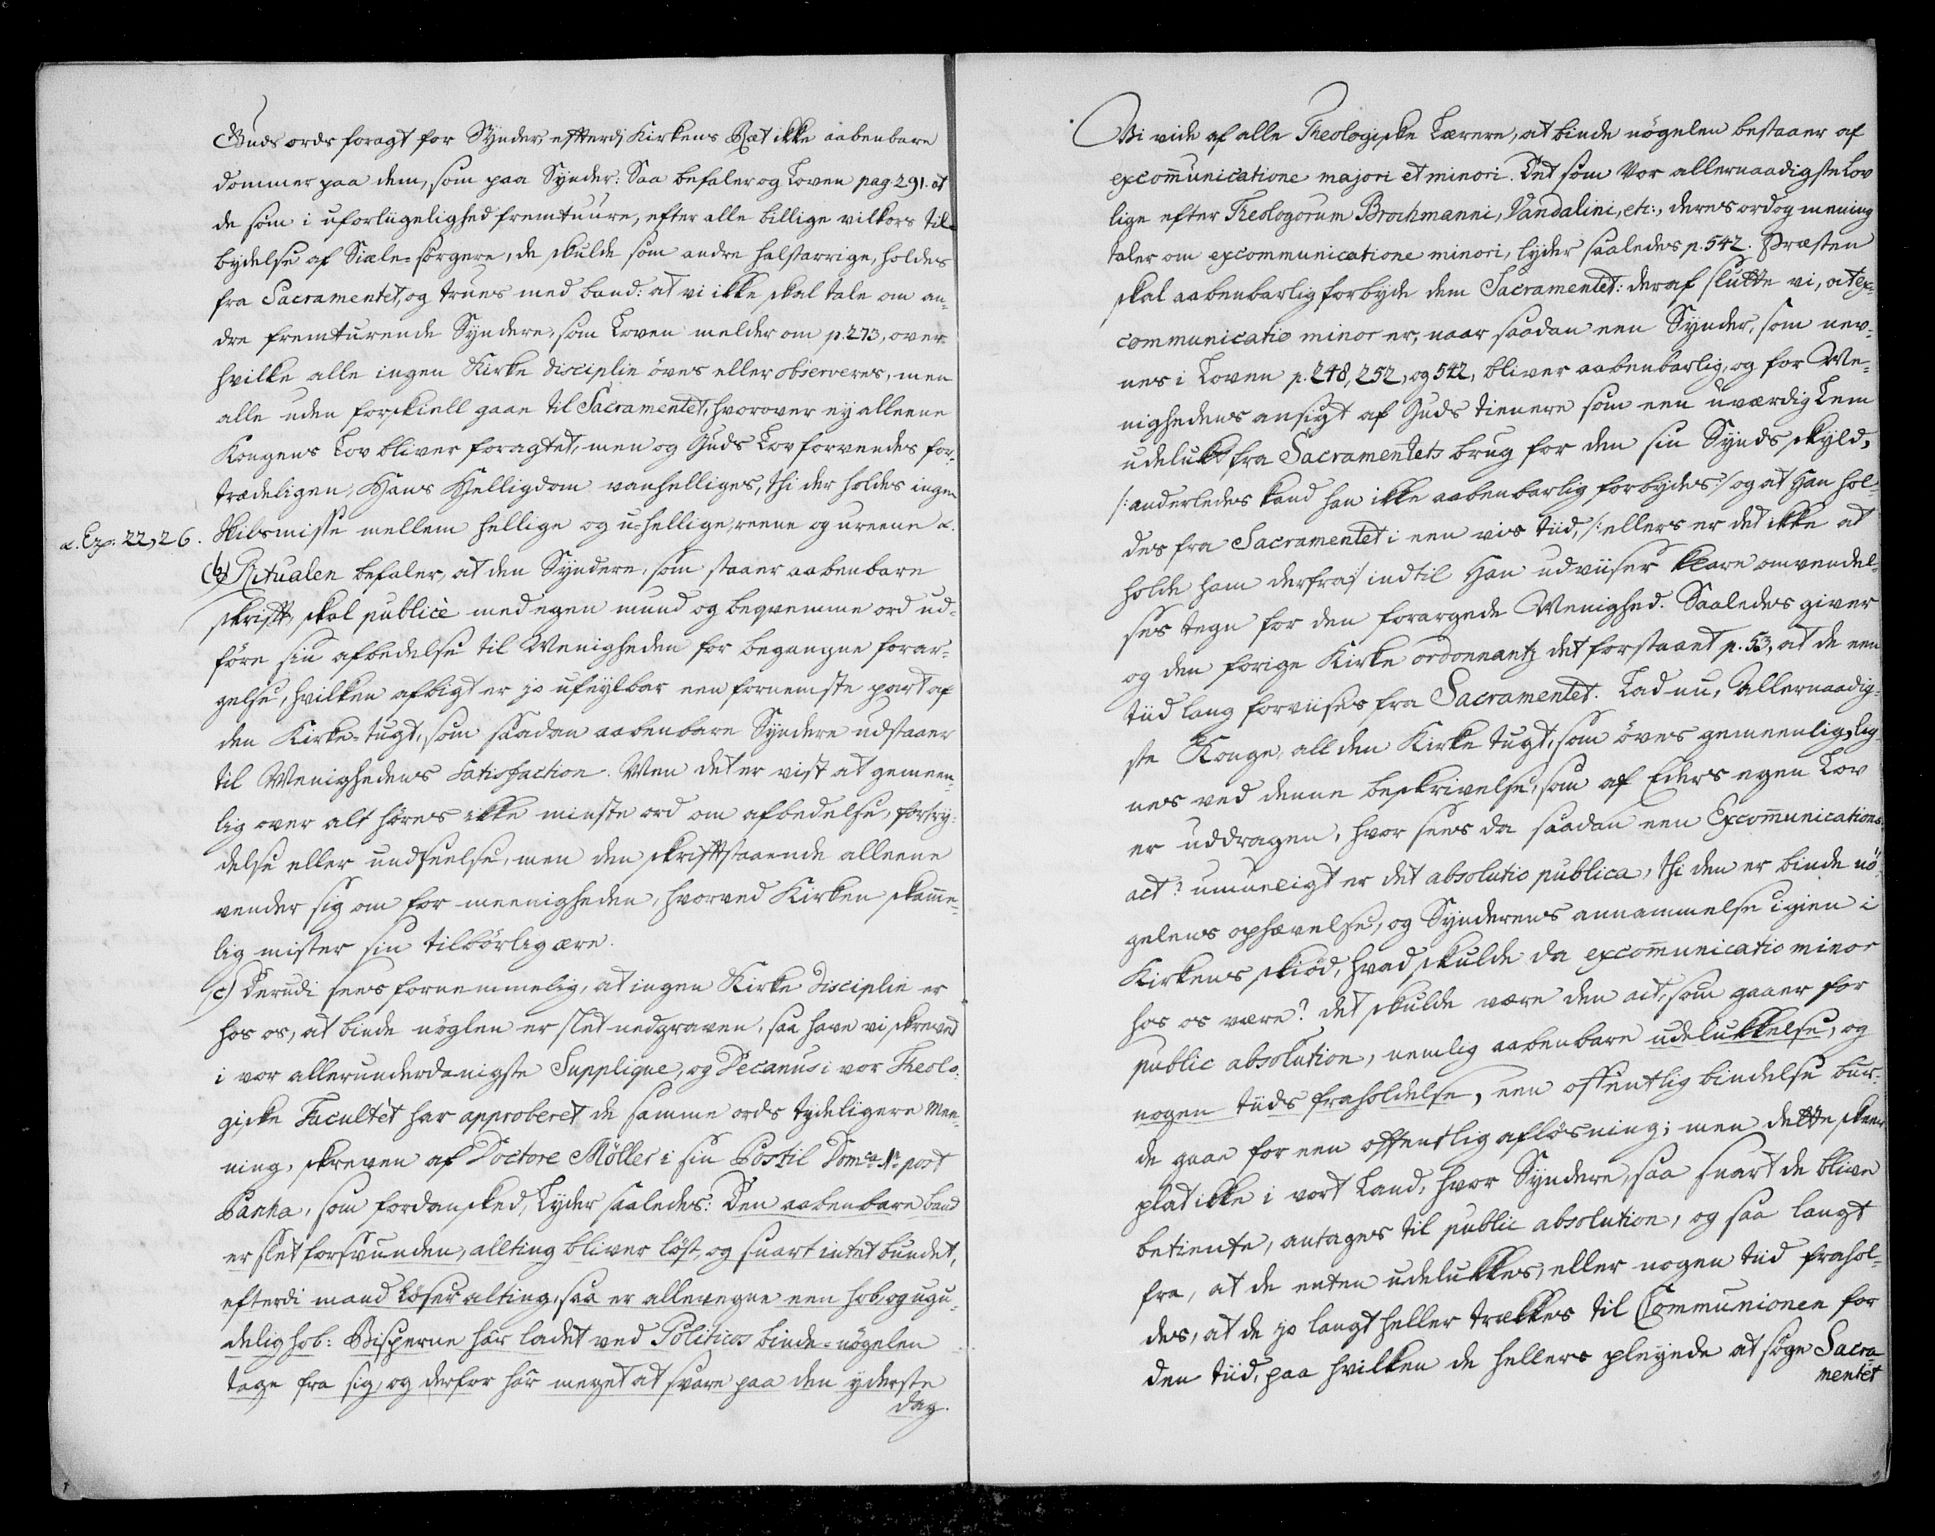 Guds ords foragt for Synder, efftterdj Kirkens Ræt ikke aabenbare
dommer paa dem, som paa Synder: Saa befaler og Loven pag. 291. at
de som i uforliigelighed fremtuure, efter alle billige vilkors til-
bydelse af Siæle-sörgere, de skulde som andre halstarrige, holdes
fra Sacramentet, og trues med band: at vi ikke skal tale om an-
dre fremturende Syndere, som Loven melder om p. 273, over
hvilke alle ingen Kirke disciplin öves eller observeres, men
alle uden forskiell gaae til Sacramentet, hvorover ey alleene
Kongens Lov bliver foragtet, men og Guds Lov forvendes for-
trædeligen, Hans Helligdom vanhelliges, thi der holdes ingen
α. Ez: 22, 26. Skilsmisse mellem hellige og u-hellige, reene og ureene α.
(b) Ritualen befaler, at den Syndere, som staaer aabenbare
skrifft, skal publicè med egen mund og beqvemme ord ud-
före sin afbedelse til Menigheden for begangne forar-
gelse, hvilken afbigt er jo ufeylbar een fornemste part af
den Kirke-tugt, som saadan aabenbare Syndere udstaaer
til Menighedens Satisfaction. Men det er vist at gemeen-
lig over alt höres ikke minste ord om afbedelse, fortry-
delse eller undseelse, men den skrifftstaaende alleene
vender sig om for meenigheden, hvorved Kirken skam̄e-
lig mister sin tilbörlig ære.
(c) Derudi sees fornemmelig, at ingen Kirke disciplin er
hos os, at binde nöglen er slet nedgraven, saa have vi skreved
i vor allerunderdanigste Supplique, og Decanus i vor Theolo-
giske Facultet har approberet de samme ords tydeligere Mee-
ning, skreven af Doctore Möller i sin Postil Dom: 1: post
Pascha, som fordansked, Lyder saaledes: Den aabenbare band
er slet forsvunden, allting bliver löst, og snart intet bundet,
efterdi mand löser alting, saa er allevegne een hob, og ugu-
delig hob: Bisperne har ladet ved Politicos binde-nögelen
tage fra sig, og derfor har meget at svare paa den yderste
dag.
Vi vide af alle Theologiske Lærere, at binde nögelen bestaaer af
excom̄unicatione majori et minori. Det som Vor allernaadigste Lov
lige efter Theologorum Brochmanni, Vandalini, etc:, deres ord og mening
taler om excommunicatione minori, lyder saaledes p. 542. Præsten
skal aabenbarlig forbyde dem Sacramentet: deraf slutte vi, at ex-
communicatio minor er, naar saadan een Synder, som nev-
nes i Loven p. 248, 252, og 542, bliver aabenbarlig, og for Me-
nighedens ansigt af Guds tienere som een uværdig Lem
udelukt fra Sacramentets brug for den sin Synds skyld,
/: anderledes kand han ikke aabenbarlig forbydes :/ og at Han hol-
des fra Sacramentet i een vis tiid, /: ellers er det ikke at
holde ham derfra :/ indtil Han udviiser klare omvendel-
ses tegn for den forargede Menighed. Saaledes giver
og den forige Kirke ordonnantz det forstaaet p. 53, at de een
tiid lang forviises fra Sacramentet. Lad nu, Allernaadig-
ste Konge, all den Kirke tugt, som öves gemeenlig, lig-
nes ved denne beskrivelse, som af Eders egen Lov
er uddragen, hvor sees da saadan een Excom̄unications-
act? umueligt er det absolutio publica, thi den er binde nö-
gelens ophævelse, og Synderens annammelse igien i
Kirkens skiöd, hvad skulde da excom̄unicatio minor
hos os være? det skulde være den act, som gaaer for
public absolution, nemlig aabenbare udelukkelse, og
nogen tiids fraholdelse, een offentlig bindelse bur-
de gaae for een offentlig aflösning; men dette skeer
plat ikke i vort Land, hvor Syndere, saa snart de blive
betiente, antages til public absolution, og saa langt
fra, at de enten udelukkes, eller nogen tiid frahol-
des, at de jo langt heller trækkes til Communionen for
den tiid, paa hvilken de hellers pleyede at söge Sacra-
mentet